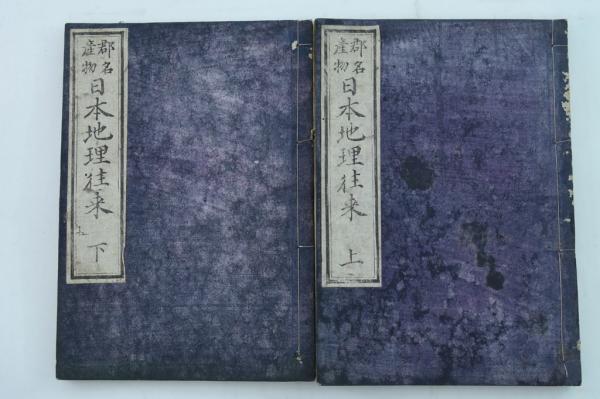 郡名
産物
日本地理往来 上
郡名
産物
日本地理往来 下